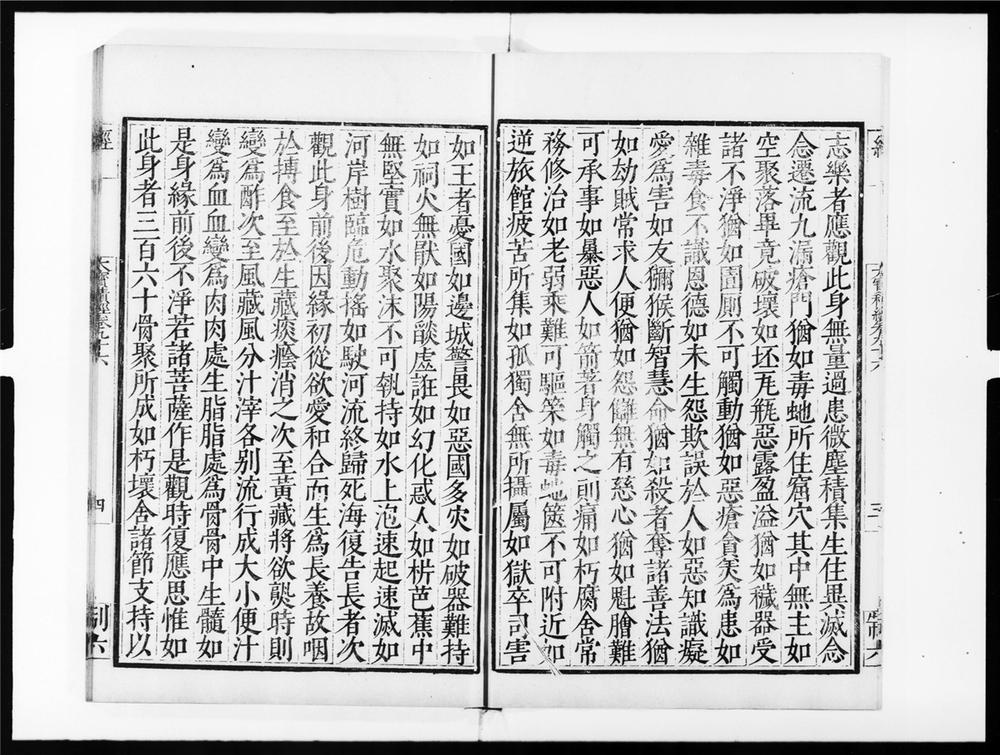 志樂者應觀此身無量過患微塵積集生住異滅念
念遷流九漏瘡門猶如毒虵所住窟穴其中無主如
空聚落畢竟破壞如坯瓦瓶惡露盈溢猶如穢器受
諸不淨猶如圊厠不可觸動猶如惡瘡貪美為患如
雜毒食不識恩德如未生怨欺誤於人如惡知識癡
愛為害如友獼猴斷智慧命猶如殺者奪諸善法猶
如劫賊常求人便猶如怨讎無有慈心猶如魁膾難
可承事如暴惡人如箭著身觸之則痛如朽腐舍常
務修治如老弱乘難可驅策如毒虵篋不可附近如
逆旅館疲苦所集如孤獨舍無所攝屬如獄卒司害
如王者憂國如邊城警畏如惡國多灾如破器難持
如祠火無猒如陽燄虛誑如幻化惑人如栟芭蕉中
無堅實如水聚沫不可執持如水上泡速起速滅如
河岸樹臨危動搖如駛河流終歸死海復告長者次
觀此身前後因緣初從欲愛和合而生為長養故咽
於摶食至於生藏痰癊消之次至黃藏將欲熟時則
變為酢次至風藏風分汁滓各別流行成大小便汁
變為血血變為肉肉處生脂脂處為骨骨中生髓如
是身緣前後不淨若諸菩薩作是觀時復應思惟如
此身者三百六十骨聚所成如朽壞舍諸節支持以
經
大寶積經卷九十六
四